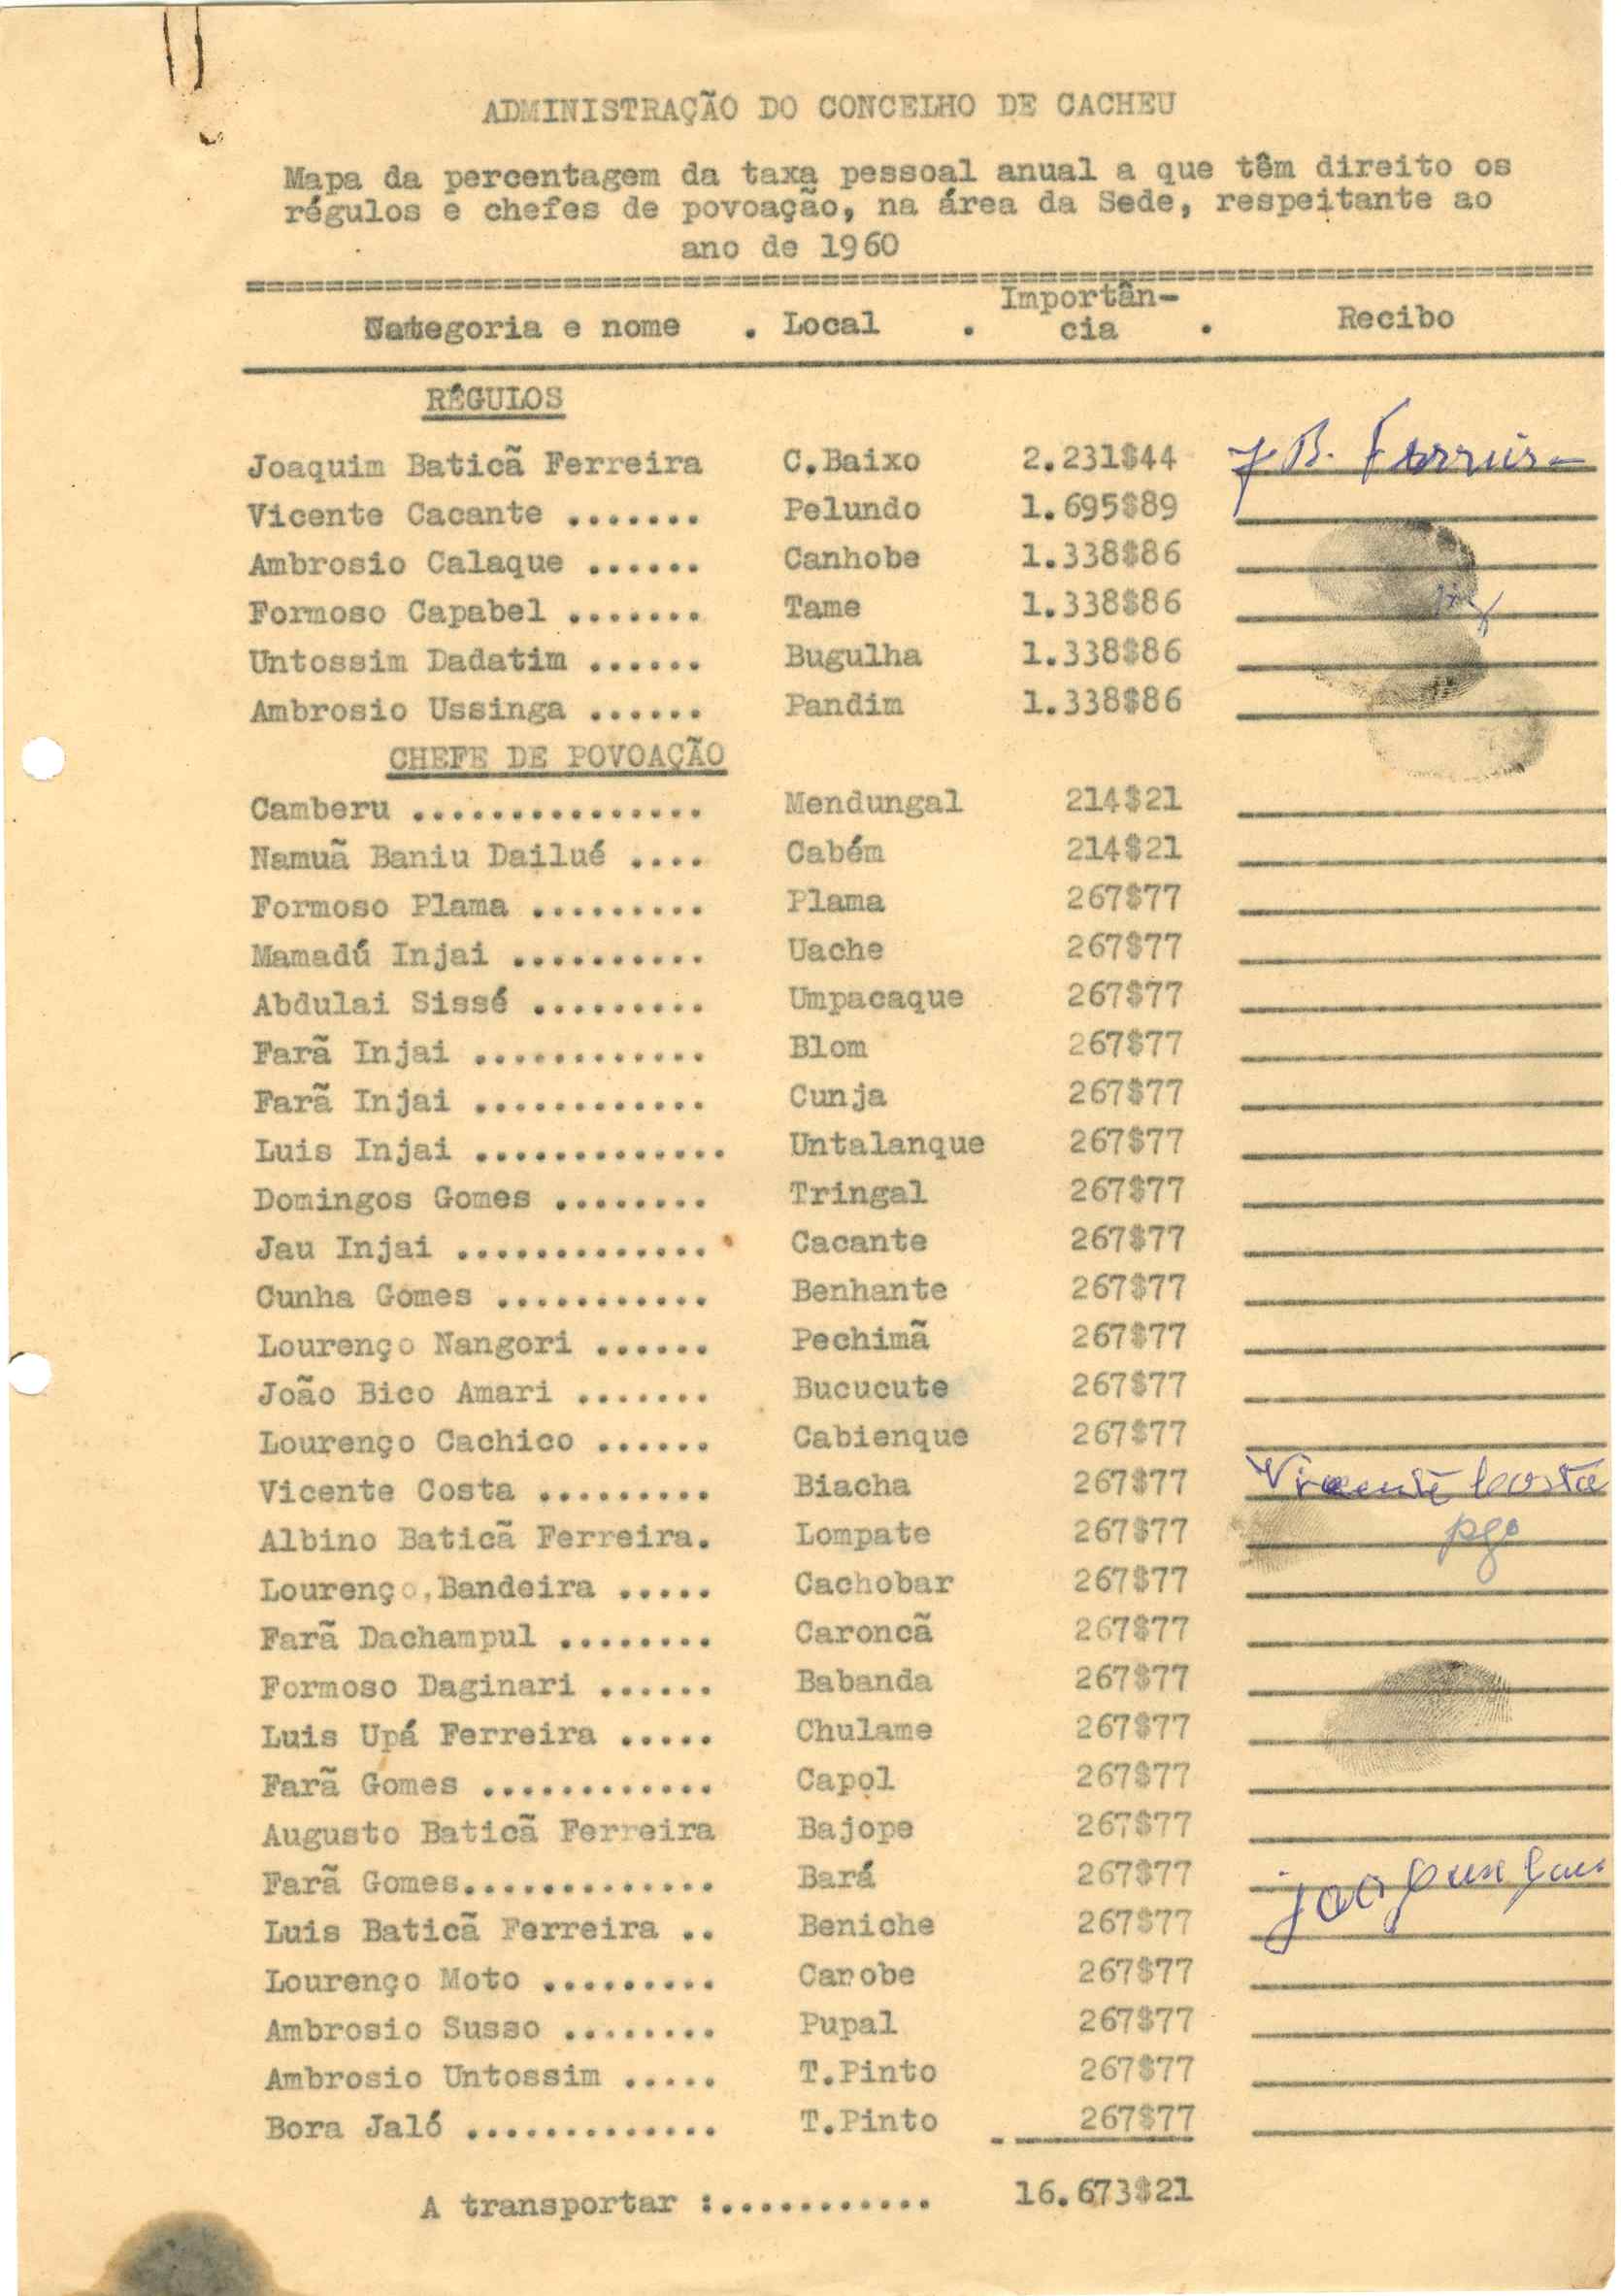 ADMINISTRAÇÃO DO CONCELHO DE CACHEU
Mapa da percentagem da taxa pessoal anual a que têm direito os
régulos e chefes de povoação, na área da Sede, respeitante ao
ano de 1960
Categoria e nome . Local . Importân-
cia . Recibo
RÉGULOS
Joaquim Baticã Ferreira C.Baixo 2.231$44 J B. Ferreira
Vicente Cacante ....... Pelundo 1.695$89
Ambrosio Calaque ...... Canhobe 1.338$86
Formoso Capabel ....... Tame 1.338$86
Untossim Dadatim ...... Bugulha 1.338$86
Ambrosio Ussinga ...... Pandim 1.338$86
CHEFE DE POVOAÇÃO
Camberu ............... Mendungal 214$21
Namuã Baniu Dailué .... Cabém 214$21
Formoso Plama ......... Plama 267$77
Mamadú Injai .......... Uache 267$77
Abdulai Sissé ......... Umpacaque 267$77
Farã Injai ............ Blom 267$77
Farã Injai ............ Cunja 267$77
Luis Injai ............. Untalanque 267$77
Domingos Gomes ........ Tringal 267$77
Jau Injai ............. Cacante 267$77
Cunha Gomes ........... Benhante 267$77
Lourenço Nangori ...... Pechimã 267$77
João Bico Amari ....... Bucucute 267$77
Lourenço Cachico ...... Cabienque 267$77
Vicente Costa ......... Biacha 267$77 Vicente Costa
Albino Baticã Ferreira. Lompate 267$77 pgo
Lourenço,Bandeira ..... Cachobar 267$77
Farã Dachampul ........ Caroncã 267$77
Formoso Daginari ...... Babanda 267$77
Luis Upá Ferreira ..... Chulame 267$77
Farã Gomes ............ Capol 267$77
Augusto Baticã Ferreira Bajope 267$77
Farã Gomes............. Bará 267$77
Luis Baticã Ferreira .. Beniche 267$77
Lourenço Moto ......... Canobe 267$77
Ambrosio Susso ........ Pupal 267$77
Ambrosio Untossim ..... T.Pinto 267$77
Bora Jaló ............. T.Pinto 267$77
A transportar :........... 16.673$21